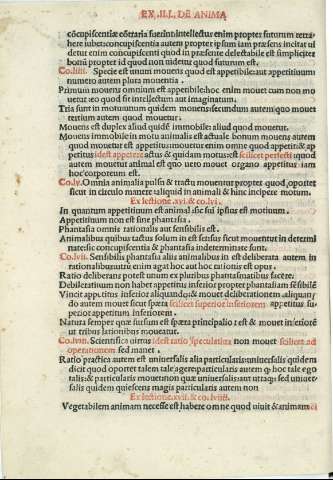 EX .III. DE ANIMA
cōcupiscētiæ cōtraria fuerint: intellectus enim propter futurum retra
here iubet: concupiscentia autem propter ipsum iam præsens incitat ui
detur enim concupiscenti quod in præsente delectabile est simpliciter
bonū propter id quod non uidetur quod futurum est.
Co.liiii. Specie est unum mouens quod est appetibile: aut appetitiuum
numero autem plura mouentia .
Primum mouens omnium est appetibile: hoc enim mouet cum non mo
uetur eo quod sit intellectum aut imaginatum.
Tria sunt in motu: unum quidem mouens: secundum autem quo mouet
tertium autem quod mouetur.
Mouens est duplex aliud quidē immobile: aliud quod mouetur.
Mouens immobile in motu animalis est actuale bonum mouens autem
quod mouetur est appetitiuum: mouetur enim omne quod appetit: & ap
petitus idest appetere actus & quidam motus: est scilicet perfecti quod
autem mouetur animal est quo uero mouet organo appetitus iam
hoc corporeum est.
Co.lv. Omnia animalia pulsu & tractu mouentur propter quod oportet
sicut in circulo manere aliquid in animali & hinc incipere motum.
Ex lectione .xvi. & co.lvi.
In quantum appetitiuum est animal sic sui ipsius est motiuum.
Appetitiuum non est sine phantasia .
Phantasia omnis rationalis aut sensibilis est .
Animalibus quibus tactus solum in est sensus sicut mouentur in determi
nate sic concupiscentia & phantasia indeterminate sunt.
Co.lvii. Sensibilis phantasia aliis animalibus in est deliberata autem in
rationalibus: utrū enim agat hoc aut hoc rationis est opus.
Ratio deliberans potest unum ex pluribus phantasmatibus facere.
Debileratiuum non habet appetitus inferior propter phantasiam sensibilē
Vincit appetitus inferior aliquando: & mouet deliberationem .aliquan
do autem mouet sicut spera scilicet superior inferiorem appetitus su
perior appetitum inferiorem .
Natura semper quæ sursum est spæra principalior est & mouet inferiorē
ut tribus lationibus moueatur.
Co.lviii. Scientificus idest ratio speculatiua non mouet scilicet ad
operationem sed manet .
Ratio practica autem est uniuersalis alia particularis: uniuersalis quidem
dicit quod oportet talem tale agere: particularis autem quod hoc tale ego
talis: & particularis mouet: non quæ uniuersalis: aut utraque: sed uniuer
salis quidem quiescens magis particularis autem non
Ex lectione .xvii. & co.lviiii.
Vegetabilem animam necesse est habere omne quod uiuit & animam